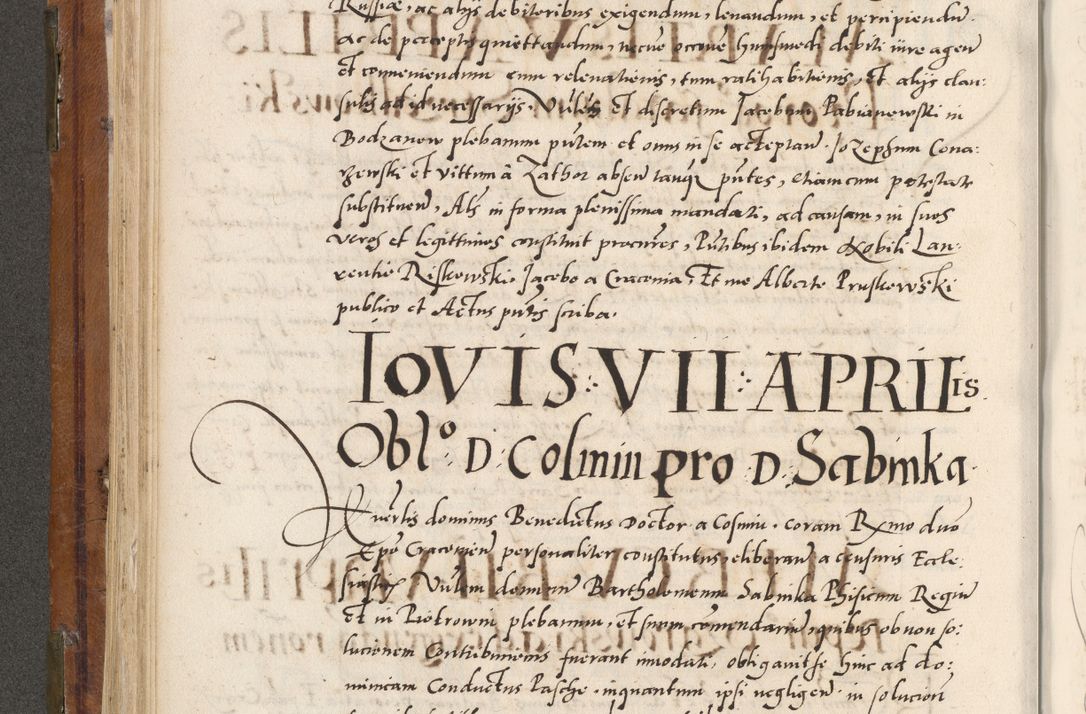 Russiae, ac alijs debitoribus exigendum, levandum, et percipiendū.
ac de perceptis quiettandum, necnē occonē huiusmodi debiti iure agen̄
et conveniendum cum relevationis, tum ratihabitionis, et alijs clau:
sulis ad id necessarijs. Vn̄lēs et discretum Jacobum Pabianowski in
Bodzanow plebanum pn̄tem et onus in se acceptan̄. Jozephum Cona:
rzewski et Vittum â Zathor absen̄ tanq̄ pn̄tes, etiam cum potestate
substituen̄, Als in forma plenissima mandati, ad causam, in suos
veros et legittimos constituit procūres, Pn̄tibus ibidem Nobili Lau:
rentio Riskowski. Jacobo a Craconia, Et me Alberto Pruskowski
publico et Actus pn̄tis scriba.
IoVIS: VII: APRILIS.
Oblº: D: Cosmin pro D: Sabinka
Vn̄rlis dominus Benedictus Doctor a Cosmin. coram Rxmo dn̄o
Epō Cracovien̄ personaliter constitutus, eliberan̄ a censuris Eccle:
siastꝝ Vn̄lem dominū Bartholomeum Sabinka Phisicum Regiū
et in Piotrowin plebanum, et suum comendariū, quibus ob non so:
lucionem Contribucionis fuerant innodati, obligavit se hinc ad do:
minicam Conductus Pasche. inquantum ipsi negligen̄ in solucion̄